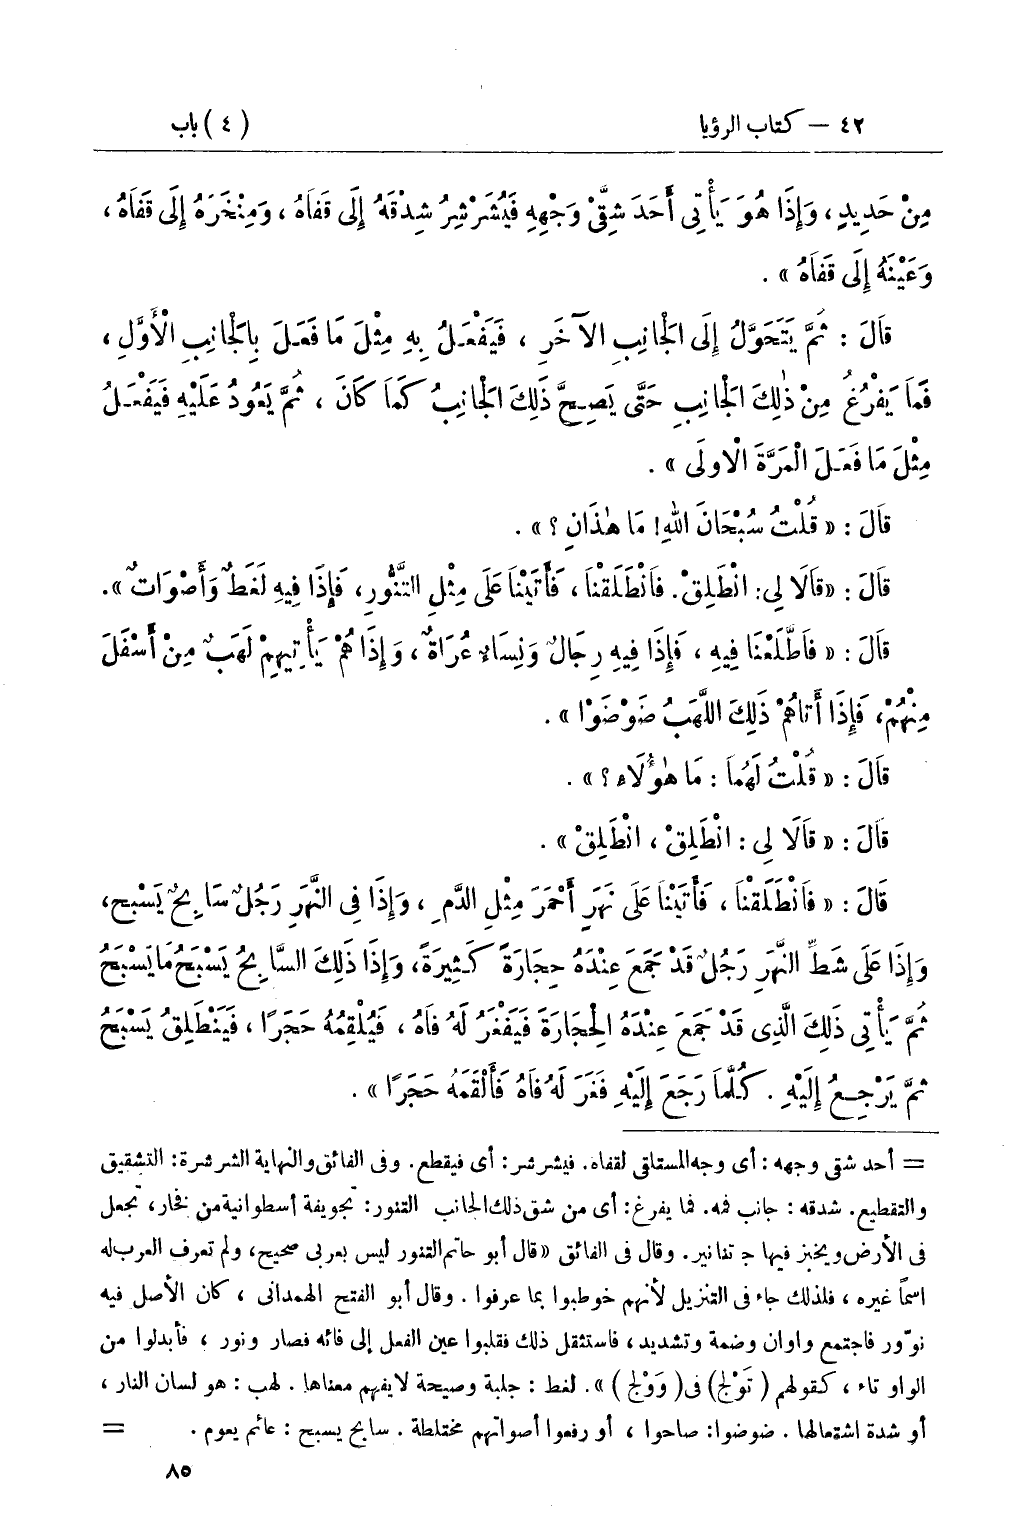 ٤٢ – كتاب الرؤيا (٤) باب
مِنْ حَدِيدٍ، وَإِذَا هُوَ يَأْتِى أَحَدَ شِقَّىْ وَجْهِهِ فَيُشَرْشِرُ شِدْقَهُ إِلَى قَفَاهُ ، وَمِنْخَرَهُ إِلَى قَفَاهُ ،
وَعَيْنَهُ إِلَى قَفَاهُ » .
قَالَ : ثُمَّ يَتَحَوَّلُ إِلَى الْجَانِبِ الْآخَرِ ، فَيَفْعَلُ بِهِ مِثْلَ مَا فَعَلَ بِالْجَانِبِ الْأَوَّلِ ،
فَمَا يَفْرُغُ مِنْ ذٰلِكَ الْجَانِبِ حَتَّى يَصِحَّ ذَلِكَ الْجَانِبُ كَمَا كَانَ ، ثُمَّ يَعُودُ عَلَيْهِ فَيَفْعَلُ
مِثْلَ مَا فَعَلَ الْمَرَّةَ الْأولَى » .
قَالَ : « قُلْتُ سُبْحَانَ اللهِ! مَا هٰذَانِ ؟ » .
قَالَ : «قَالَا لِى: انْطَلِقْ. فَانْطَلَقْنَا ، فَأَتَيْنَا عَلَى مِثْلِ التَّنُّورِ، فَإِذَا فِيهِ لَغَطٌ وَأَصْوَاتٌ».
قَالَ : « فَاطَّلَعْنَا فِيهِ ، فَإِذَا فِيهِ رِجَالٌ وَنِسَاءٌ عُرَاةٌ ، وَإِذَا هُمْ يَأْتِيهِمْ لَهَبٌ مِنْ أَسْفَلَ
مِنْهُمْ، فَإِذَا أَتَاهُمْ ذَلِكَ اللَّهَبُ ضَوْضَوْا » .
قَالَ : « قُلْتُ لَهُمَا : مَا هٰؤُلَاءِ ؟ » .
قَالَ : « قَالَا لِى : انْطَلِقْ ، انْطَلِقْ » .
قَالَ : « فَانْطَلَقْنَا ، فَأَتَيْنَا عَلَى نَهَرٍ أَحْمَرَ مِثْلِ الدَّمِ ، وَإِذَا فِى النَّهَرِ رَجُلٌ سَابِحٌ يَسْبَح،
وَإِذَا عَلَى شَطِّ النَّهَرِ رَجُلٌ قَدْ جَمَعَ عِنْدَهُ حِجَارَةً كَثِيرَةً، وَإِذَا ذَلِكَ السَّابِحُ يَسْبَحُ مَا يَسْبَحُ
ثُمَّ يَأْتِى ذَلِكَ الَّذِى قَدْ جَمَعَ عِنْدَهُ الْحِجَارَةَ فَيَفْغَرُ لَهُ فَاهُ ، فَيُلْقِمُهُ حَجَرًا ، فَيَنْطَلِقُ يَسْبَحُ
ثمَّ يَرْجِعُ إِلَيْهِ . كُلَّمَا رَجَعَ إِلَيْهِ فَغَرَ لَهُ فَاهُ فَأَلْقَمَهُ حَجَرًا » .
= أحد شقى وجهه : أى وجه المستلقى لقفاه. فيشرشر: أى فيقطع. وفى الفائق والنهاية الشرشرة: التشقيق
والتقطيع. شدقه : جانب فمه. فما يفرغ: أى من شق ذلك الجانب التنور: تجويفة أسطوانية من فخار، تجعل
فى الأرض ويخبز فيها ج تنانير. وقال فى الفائق «قال أبو حاتم التنور ليس بعربى صحيح، ولم تعرف العرب له
اسماً غيره ، فلذلك جاء فى التنزيل لأنهم خوطبوا بما عرفوا . وقال أبو الفتح الهمدانى ، كان الأصل فيه
نوّور فاجتمع واوان وضمة وتشديد، فاستثقل ذلك فقلبوا عين الفعل إلى فائه فصار ونور ، فأبدلوا من
الواو تاء ، كقولهم (تَوْلج) فى (وَوْلج) ». لغط : جلبة وصيحة لا يفهم معناها . لهب : هو لسان النار ،
أو شدة اشتعالها . ضوضوا: صاحوا ، أو رفعوا أصواتهم مختلطة . سابح يسبح : عائم يعوم . =
٨٥